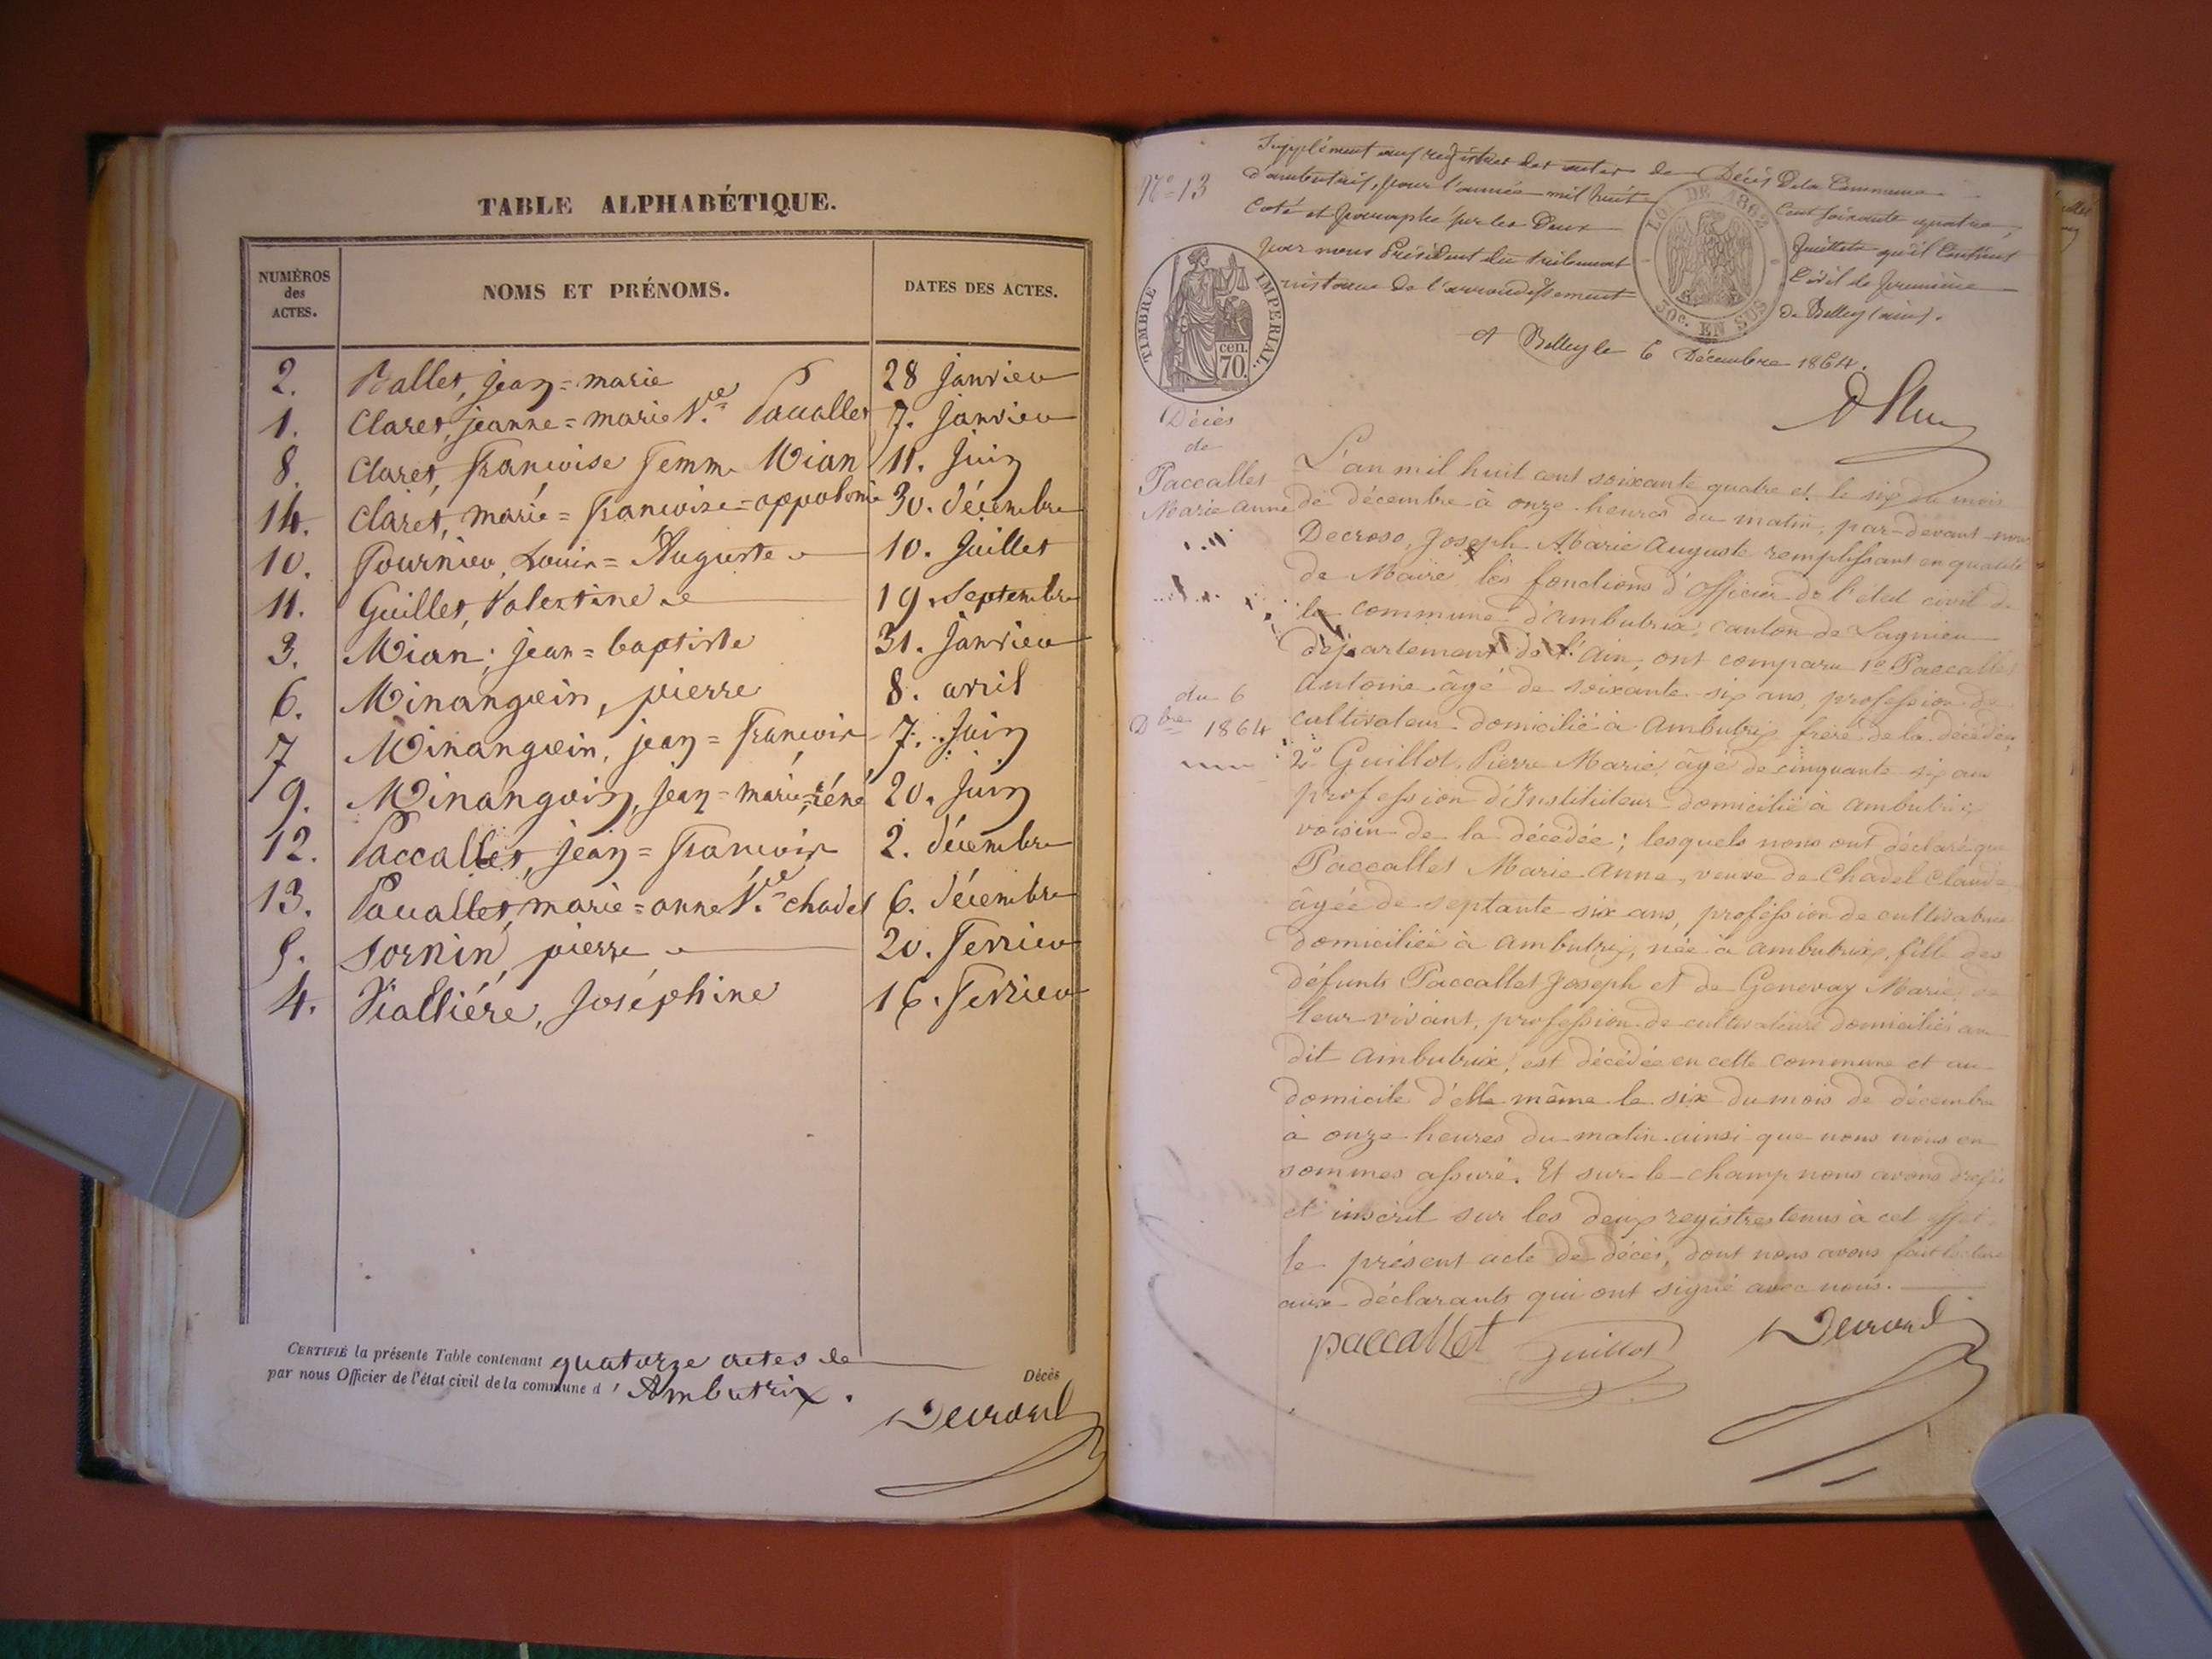 TABLE ALPHABÉTIQUE.
NUMÉROS des ACTES. NOMS ET PRÉNOMS. DATES DES ACTES.
2. Ballet, jean=marie 28 janvier
1. Claret, jeanne=marie Vve Paccallet 7. janvier
8. Claret, françoise femme Mian 11. juin
14. Claret, marie=françoise=appolonie 30. décembre
10. Fournier, Louis=Auguste 10. juillet
11. Guillet, Valentine 19. Septembre
3. Mian, jean=baptiste 31. janvier
6. Minangoin, pierre 8. avril
7 Minangoin, jean=françois 7. juin
9. Minangoin, jean=marie=réné 20. juin
12. Paccallet, jean=françois 2. décembre
13. Paccallet, marie=anne Vve chadel 6. décembre
5. Sornin, pierre 20. février
4. Vialliére, Joséphine 16. février
CERTIFIÉ la présente Table contenant quatorze actes de Décès
par nous Officier de l'état civil de la commune d'Ambutrix.
Decroso
N° 13
Supplément aux registres des actes de Décès de la Commune
d'ambutrix, pour l'année mil huit cent soixante quatre,
Coté et paraphé sur les Deux feuillets qu'il Contient
par nous Président du tribunal Civil de première
instance de l'arrondissement de Belley (ain).
A Belley le 6 Décembre 1864.
LOI DE 1862
30c. EN SUS
TIMBRE IMPERIAL.
cen. 70.
Décès
de
Paccallet
Marie anne
du 6
Dbre 1864
L'an mil huit cent soixante quatre et le six du mois
de décembre à onze heures du matin, par-devant nous
Decroso, Joseph Marie Auguste remplissant en qualité
de Maire les fonctions d'Officier de l'état civil de
la commune d'ambutrix, canton de Lagnieu
département de l'Ain, ont comparu 1° Paccallet
antoine âgé de soixante-six ans, profession de
cultivateur domicilié à Ambutrix frère de la décédée,
2° Guillot, Pierre Marie, âgé de cinquante six ans
profession d'Instituteur domicilié à ambutrix,
voisin de la décédée ; lesquels nous ont déclaré que
Paccallet Marie Anne, veuve de Chadel Claude
âgée de septante six ans, profession de cultivatrice
domiciliée à Ambutrix, née à ambutrix, fille des
défunts Paccallet Joseph et de Genevay Marie, de
leur vivant, profession de cultivateurs domiciliés au
dit ambutrix, est décédée en cette commune et au
domicile d'elle même le six du mois de décembre
à onze heures du matin ainsi que nous nous en
sommes assuré. Et sur-le-champ nous avons dressé
et inscrit sur les deux registres tenus à cet effet,
le présent acte de décès, dont nous avons fait lecture
aux déclarants qui ont signé avec nous.
paccallet Guillot Decroso